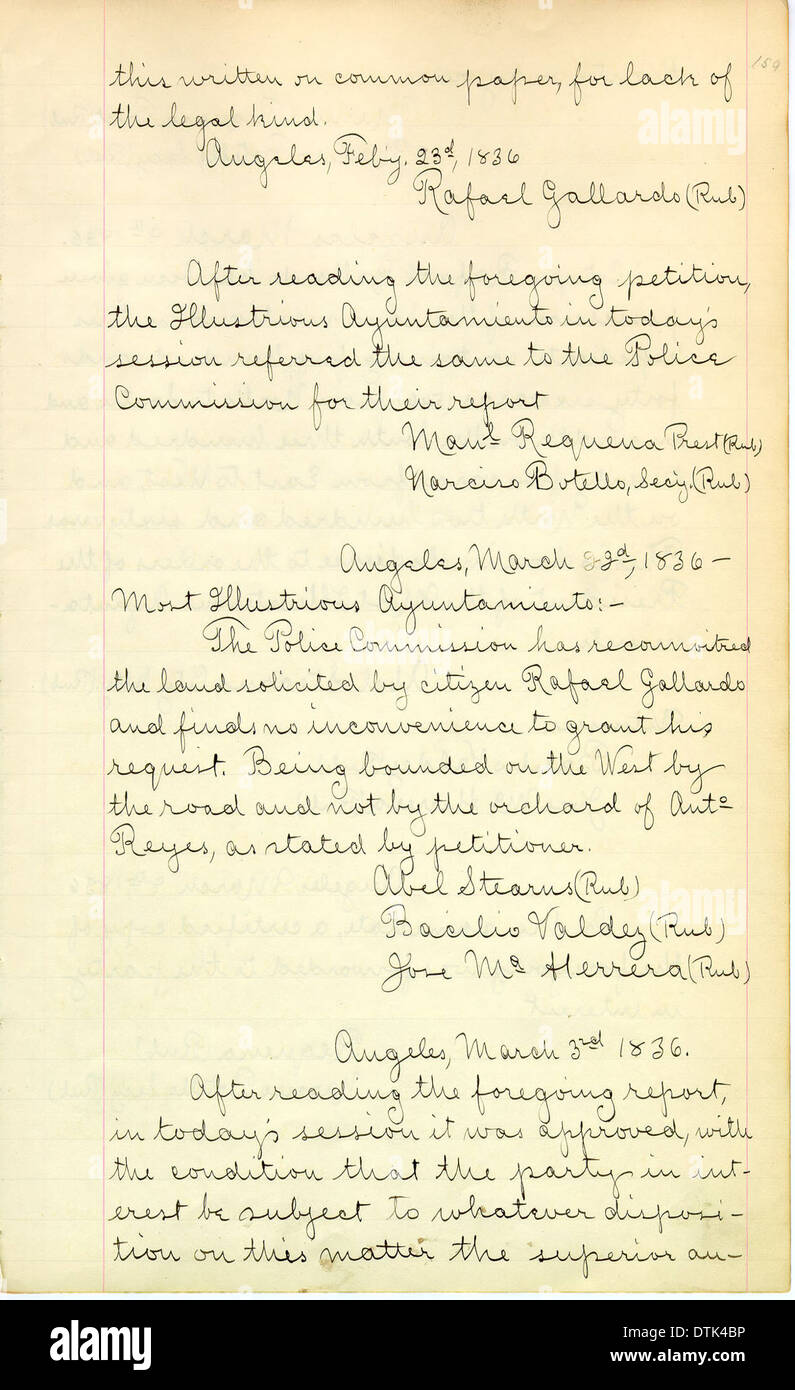 159
this written on common paper, for lack of
the legal kind.
Angeles, Feby. 23d, 1836
Rafael Gallardo (Rub)
After reading the foregoing petition,
the Illustrious Ayuntamiento in today's
session referred the same to the Police
Commission for their report
Manl. Requena Prest (Rub)
Narciso Botello, Secy. (Rub)
Angeles, March 2d, 1836 —
Most Illustrious Ayuntamiento:-
The Police Commission has reconnoitred
the land solicited by citizen Rafael Gallardo
and finds no inconvenience to grant his
request. Being bounded on the West by
the road and not by the orchard of Anto
Reyes, as stated by petitioner.
Abel Stearns (Rub)
Bacilio Valdez (Rub)
Jose Ma Herrera (Rub)
Angeles, March 3rd 1836.
After reading the foregoing report,
in today's session it was approved, with
the condition that the party in int-
erest be subject to whatever disposi-
tion on this matter the superior au-
alamy
Image ID: DTK4BP
www.alamy.com